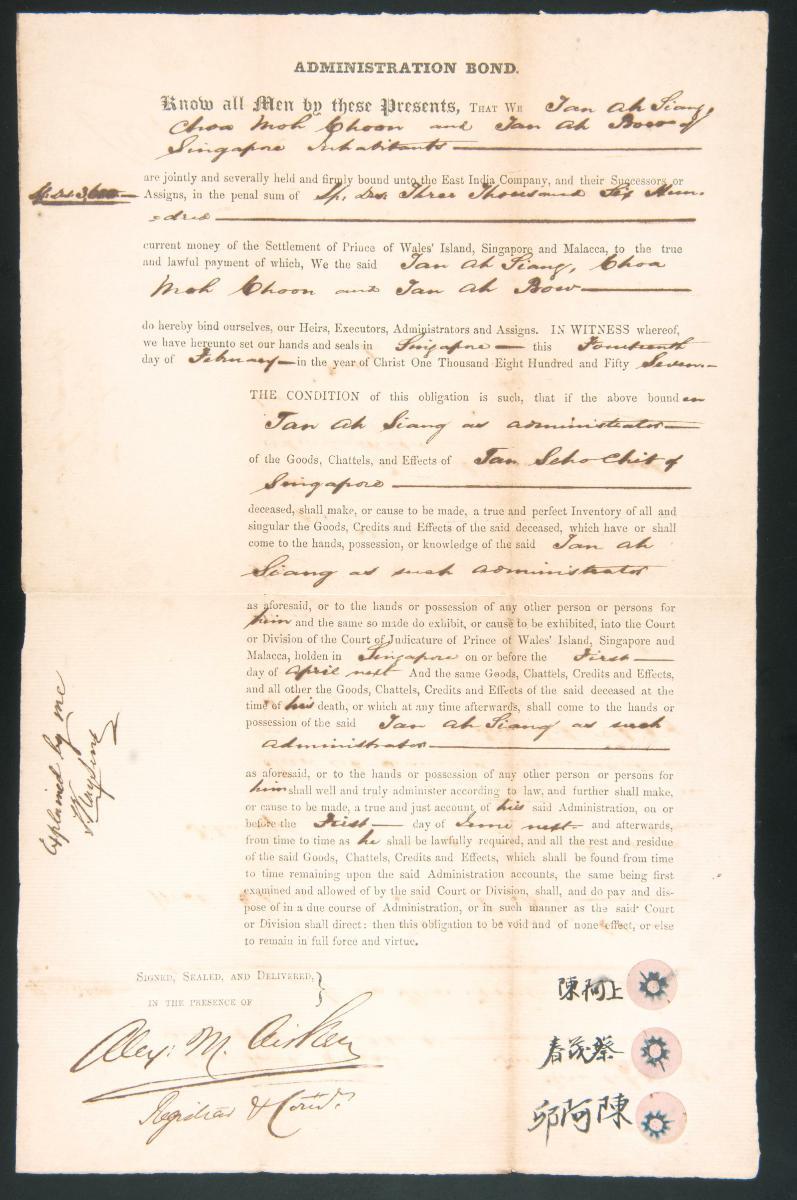 ADMINISTRATION BOND.
Know all Men by these Presents, THAT WE Tan Ah Siang,
Choa Moh Choon and Tan Ah Bow of
Singapore Inhabitants
are jointly and severally held and firmly bound unto the East India Company, and their Successors or
Sp. Drs. 3,600
Assigns, in the penal sum of Sp. Drs. Three Thousand Six Hun-
-dred
current money of the Settlement of Prince of Wales' Island, Singapore and Malacca, to the true
and lawful payment of which, We the said Tan Ah Siang, Choa
Moh Choon and Tan Ah Bow
do hereby bind ourselves, our Heirs, Executors, Administrators and Assigns. IN WITNESS whereof,
we have hereunto set our hands and seals in Singapore this Fourteenth
day of February in the year of Christ One Thousand Eight Hundred and Fifty Seven
THE CONDITION of this obligation is such, that if the above bounden
Tan Ah Siang as administrator
of the Goods, Chattels, and Effects of Tan Scho Chit of
Singapore
deceased, shall make, or cause to be made, a true and perfect Inventory of all and
singular the Goods, Credits and Effects of the said deceased, which have or shall
come to the hands, possession, or knowledge of the said Tan Ah
Siang as such administrator
as aforesaid, or to the hands or possession of any other person or persons for
him and the same so made do exhibit, or cause to be exhibited, into the Court
or Division of the Court of Judicature of Prince of Wales' Island, Singapore and
Malacca, holden in Singapore on or before the First
day of April next And the same Goods, Chattels, Credits and Effects,
and all other the Goods, Chattels, Credits and Effects of the said deceased at the
time of his death, or which at any time afterwards, shall come to the hands or
possession of the said Tan Ah Siang as such
administrator
as aforesaid, or to the hands or possession of any other person or persons for
him shall well and truly administer according to law, and further shall make,
or cause to be made, a true and just account of his said Administration, on or
before the First day of June next and afterwards,
from time to time as he shall be lawfully required, and all the rest and residue
of the said Goods, Chattels, Credits and Effects, which shall be found from time
to time remaining upon the said Administration accounts, the same being first
examined and allowed of by the said Court or Division, shall, and do pay and dis-
pose of in a due course of Administration, or in such manner as the said Court
or Division shall direct: then this obligation to be void and of none effect, or else
to remain in full force and virtue.
Explained by me
SIGNED, SEALED, AND DELIVERED,
IN THE PRESENCE OF
Alex: M. Aitken
Registrar &
陳阿上
春茂蔡
卯阿陳